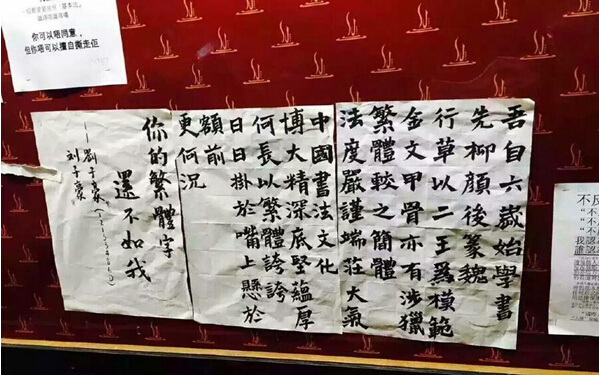 你可以唔同意，
但你唔可以擅自撕走佢
吾自六歲始學書
先柳顏後篆魏
行草以二王爲模範
金文甲骨亦有涉獵
繁體較之簡體
法度嚴謹端莊大氣
中國書法文化
博大精深底堅蘊厚
何長以繁體誇誇
日日掛於嘴上懸於
額前
更何況
你的繁體字
還不如我
——劉子豪
刘子豪
不反
“不
“不
“不
我認為